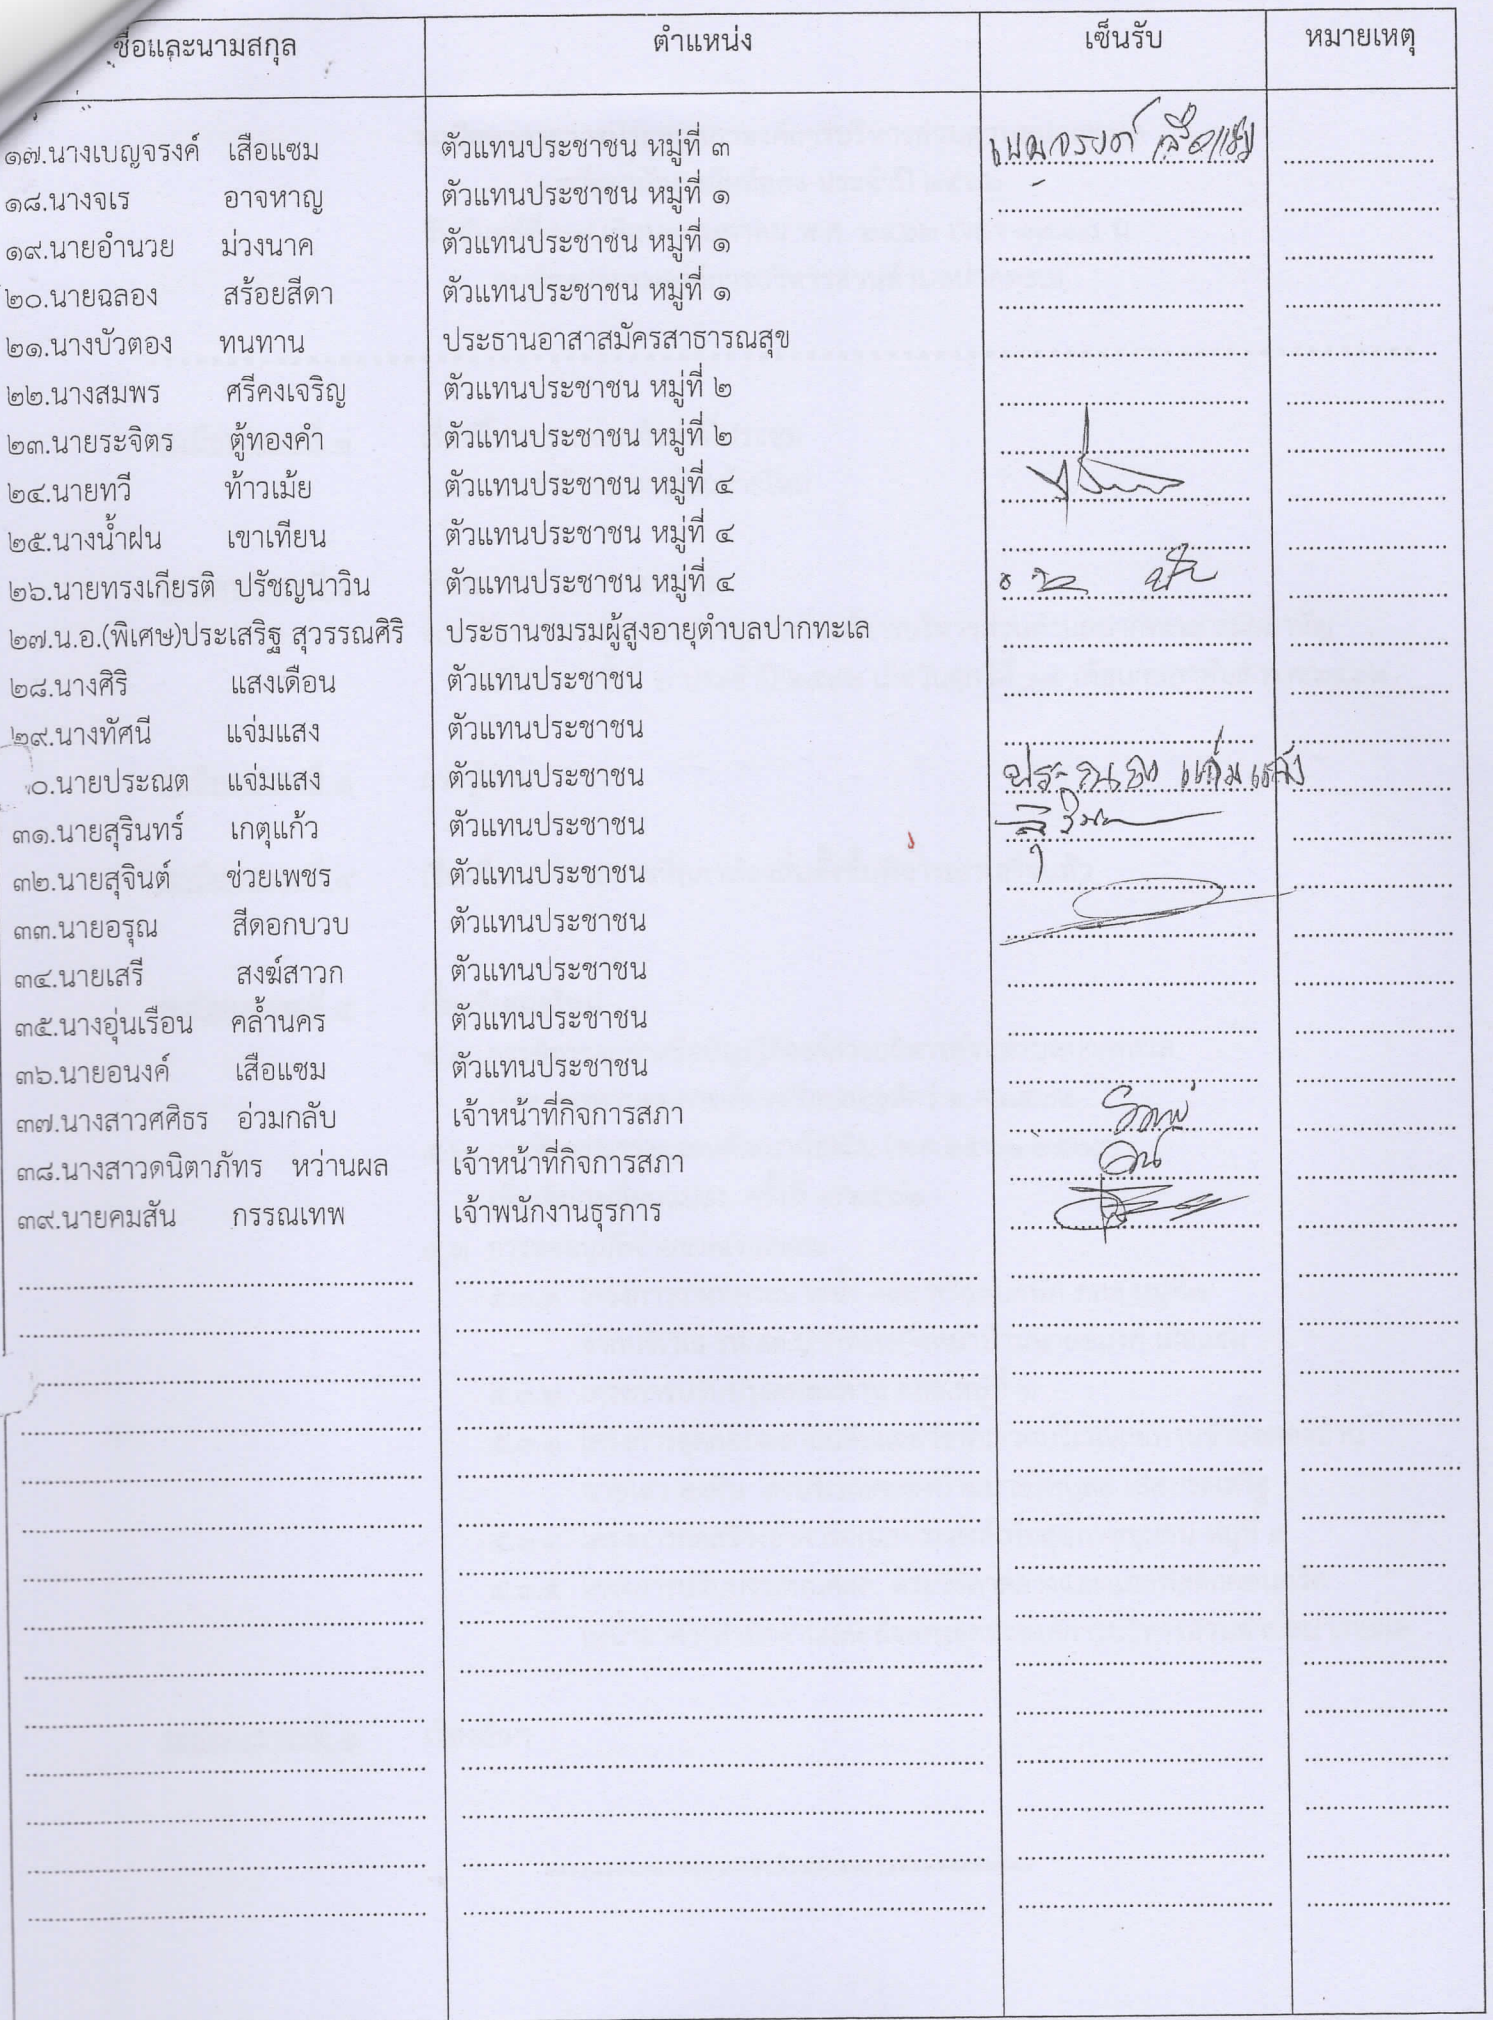 ชื่อและนามสกุล ตำแหน่ง เซ็นรับ หมายเหตุ
๑๗.นางเบญจรงค์ เสือแซม ตัวแทนประชาชน หมู่ที่ ๓ เบญจรงค์ เสือแซม
๑๘.นางจเร อาจหาญ ตัวแทนประชาชน หมู่ที่ ๑
๑๙.นายอำนวย ม่วงนาค ตัวแทนประชาชน หมู่ที่ ๑
๒๐.นายฉลอง สร้อยสีดา ตัวแทนประชาชน หมู่ที่ ๑
๒๑.นางบัวตอง ทนทาน ประธานอาสาสมัครสาธารณสุข
๒๒.นางสมพร ศรีคงเจริญ ตัวแทนประชาชน หมู่ที่ ๒
๒๓.นายระจิตร ตู้ทองคำ ตัวแทนประชาชน หมู่ที่ ๒
๒๔.นายทวี ท้าวเม้ย ตัวแทนประชาชน หมู่ที่ ๔
๒๕.นางน้ำฝน เขาเทียน ตัวแทนประชาชน หมู่ที่ ๔
๒๖.นายทรงเกียรติ ปรัชญนาวิน ตัวแทนประชาชน หมู่ที่ ๔
๒๗.น.อ.(พิเศษ)ประเสริฐ สุวรรณศิริ ประธานชมรมผู้สูงอายุตำบลปากทะเล
๒๘.นางศิริ แสงเดือน ตัวแทนประชาชน
๒๙.นางทัศนี แจ่มแสง ตัวแทนประชาชน
๐.นายประณต แจ่มแสง ตัวแทนประชาชน ประณต แจ่มแสง
๓๑.นายสุรินทร์ เกตุแก้ว ตัวแทนประชาชน
๓๒.นายสุจินต์ ช่วยเพชร ตัวแทนประชาชน
๓๓.นายอรุณ สีดอกบวบ ตัวแทนประชาชน
๓๔.นายเสรี สงฆ์สาวก ตัวแทนประชาชน
๓๕.นางอุ่นเรือน คล้ำนคร ตัวแทนประชาชน
๓๖.นายอนงค์ เสือแซม ตัวแทนประชาชน
๓๗.นางสาวศศิธร อ่วมกลับ เจ้าหน้าที่กิจการสภา
๓๘.นางสาวดนิตาภัทร หว่านผล เจ้าหน้าที่กิจการสภา
๓๙.นายคมสัน กรรณเทพ เจ้าพนักงานธุรการ